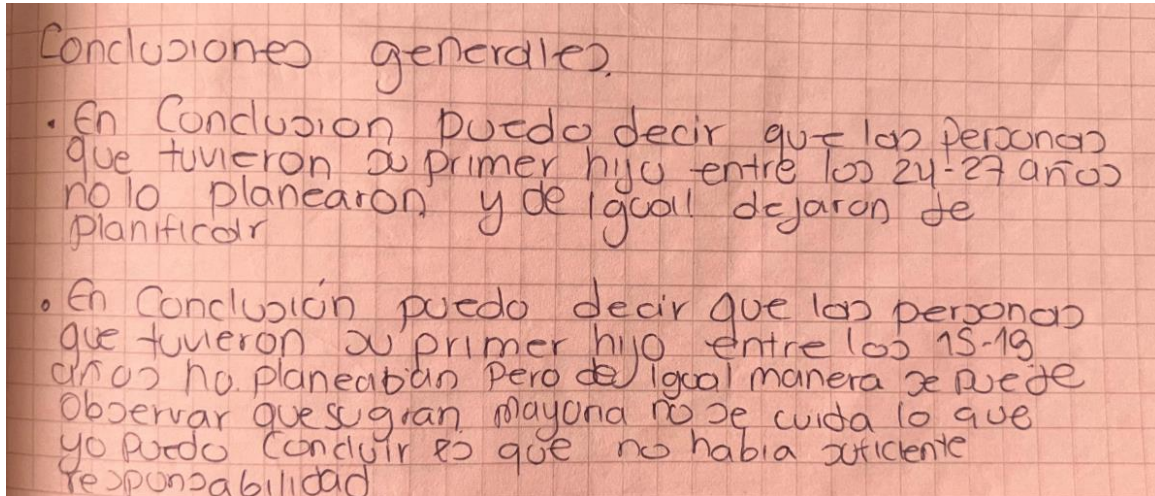 Conclusiones generales.
• En Conclusion puedo decir que las personas
que tuvieron su primer hijo entre los 24-27 años
no lo planearon y de igual dejaron de
planificar
• En Conclusión puedo decir que las personas
que tuvieron su primer hijo entre los 15-19
años no planeaban Pero de igual manera se puede
observar que su gran mayoria no se cuida lo que
yo puedo concluir es que no habia suficiente
responsabilidad